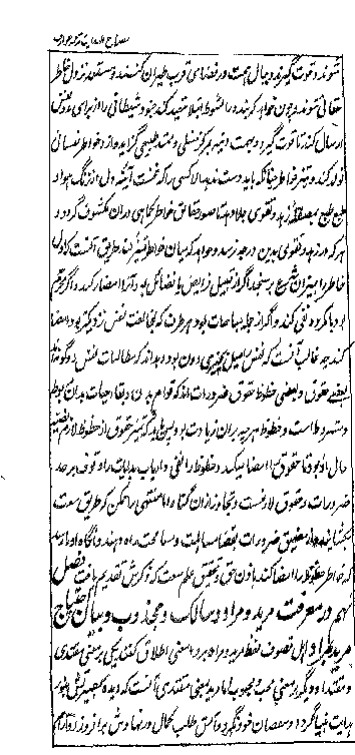 مصباح الهدایت ترجمه عوارف
شوند و قوت گیرند و ببال همت در فضای قرب طیران کنند و مستعد نزول خاطر
حقانی شوند و چون خواهد که بنده را بشوط ابتلا مقید کند جنود شیطانی را از برای مدد نفس
ارسال کند تا قوت گیرد و بهمت دنیه بمرکز سفلی و مشتهی طبیعی گراید و از و خواطر نفسانی
تولد کند و تمیز خواطر چنانکه باید دست ندهد الا کسی را که نخست آئینه دل از زنگ هوا و
طبع بمصقله زهد و تقوی جلا دهد تا صور حقائق خواطر کماهی دران مکشوف گردد و
هر که در زهد و تقوی بدین درجه نرسد و خواهد که میان خواطر تمیز کند طریق آنست که اول
خاطر را بمیزان شرع برسنجد اگر از قبیل فرایض یا فضائل بود آنرا امضا کند و اگر محرم
بود یا مکروه نفی کند و اگر از جمله مباحات بود هر طرف که بمخالفت نفس نزدیکتر بود امضا
کند چه غالب آنست که نفس را میل بچیزی دون بود و بداند که مطالبات نفس دو گونه اند
بعضی حقوق و بعضی حظوظ حقوق ضرورات اند که قوام بدن و بقاء حیات بدان مربوط
و مشروط است و حظوظ هر چه بران زیادت بود پس باید که تمیز حقوق از حظوظ لازم
حال او بود تا حقوق را امضا میکند و حظوظ را نفی و ارباب بدایات را وقوف بر حد
ضرورات و حقوق لازمست و تجاوز ازان گناه و اما منتهی را ممکن که طریق سعت
بکشایند و از مضیق ضرورات بفضاء مساهلت و مسامحت راه دهند و آنگاه او را رسد
که خواطر حظوظ را امضا کند باذن حق و تحقیق علم سعت که ذکرش تقدیم یافت فصل
نهم در معرفت مرید و مراد و سالک و مجذوب و بیان احتیاج
مرید بمراد اهل تصوف لفظ مرید و مراد بر دو معنی اطلاق کنند یکی بر معنی مقتدی
و مقتدا و دیگر بر معنی محب و محبوب اما مرید بمعنی مقتدی آنست که دیده بصیرتش بنور
هدایت بینا گردد و بنقصان خود نگرد و آتش طلب کمال در نهادش برافروزد و آرام